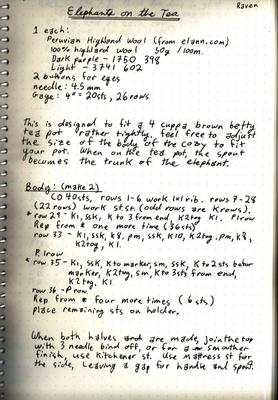 Raven
Elephants on the Tea
1 each:
Peruvian Highland Wool (from elann.com)
100% highland wool 50g /100m.
Dark purple - 1750 398
Light - 3741 602
2 buttons for eyes
needle: 4.5 mm
Gage: 4" = 20sts, 26 rows
This is designed to fit a 4 cuppa brown betty
tea pot rather tightly. feel free to adjust
the size of the body of the cozy to fit
your pot. When on the tea pot, the spout
becomes the trunk of the elephant.
Body: (make 2)
CO 40sts, rows 1-6 work 1x1 rib. rows 7-28
(22 rows) work st.st. (odd rows are K rows).
* row 29 - K1, SSK, K to 3 from end, K2tog K1. P1row
Rep from * one more time (36sts)
row 33 - K1, SSK, K8, pm, SSK, K10, K2tog, pm, K8,
K2tog, K1.
P 1row
* row 35 - K1, SSK, K to marker, sm, SSK, K to 2sts before
marker, K2tog, sm, K to 3sts from end,
K2tog, K1
row 36 - P row.
Rep from * four more times (6 sts)
place remaining sts on holder.
When both halves are made, join the top
with 3 needle bind off, or for a smoother
finish, use Kitchener st. Use mattress st for
the side, leaving a gap for handle and spout.